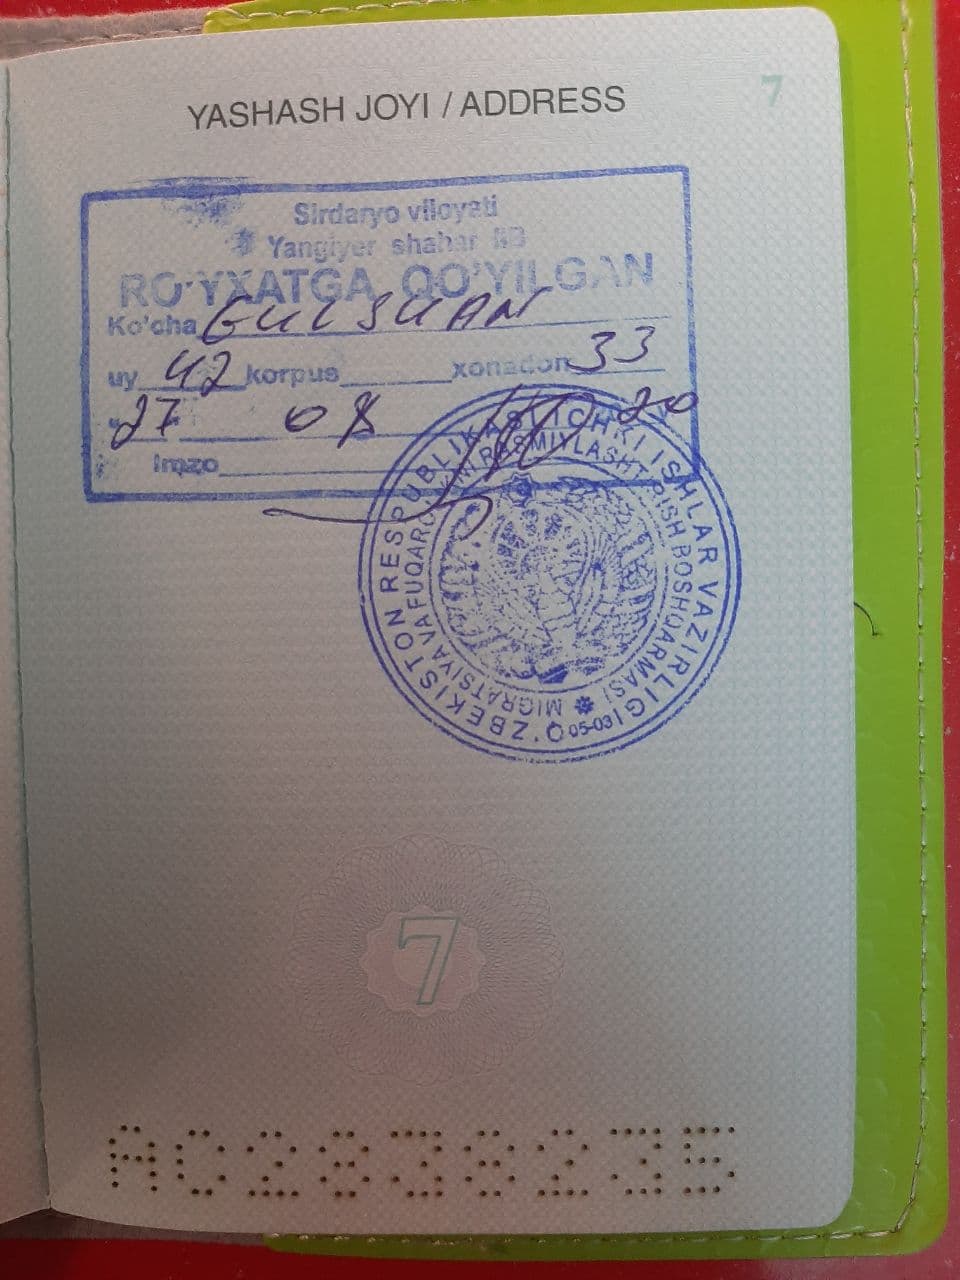 7
YASHASH JOYI / ADDRESS
Sirdaryo viloyati
Yangiyer shahar IIB
RO'YXATGA QO'YILGAN
Ko'cha GULSHAN
uy 42 korpus xonadon 33
" 27 08 20
Imzo
O'ZBEKISTON RESPUBLIKASI ICHKI ISHLAR VAZIRLIGI
MIGRATSIYA VA FUQAROLIKNI RASMIYLASHTIRISH BOSHQARMASI
05-03
7
AC2838235